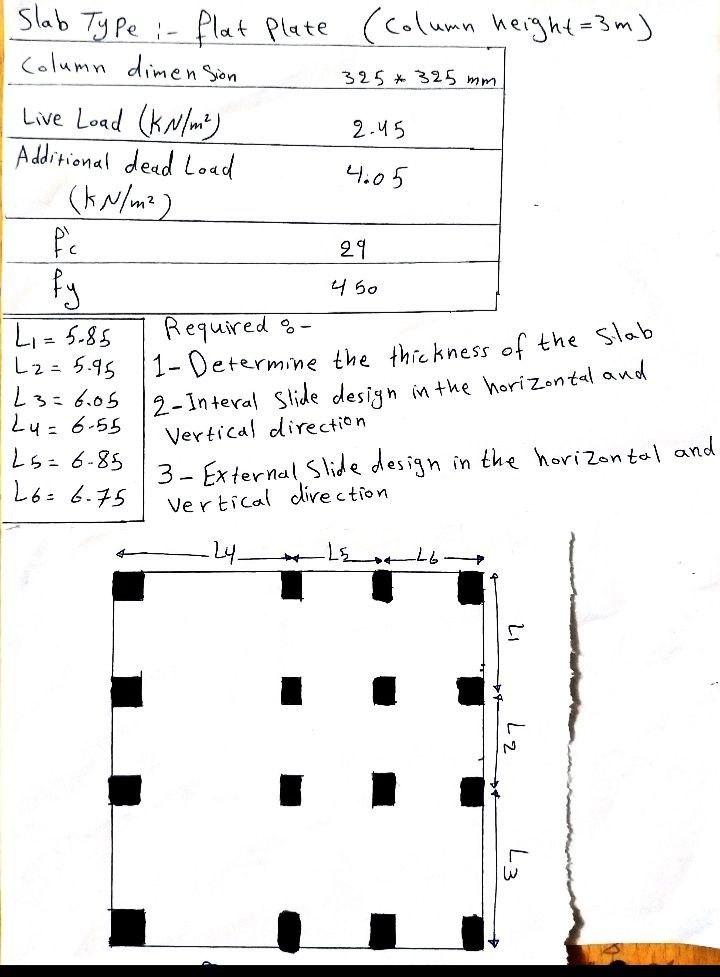 Slab Type :- flat plate (Column height=3m)
Column dimension 325 * 325 mm
Live Load (kN/m²) 2.45
Additional dead Load 4.05
(kN/m²)
f'c 29
fy 450
L1 = 5.85
L2 = 5.95
L3 = 6.05
L4 = 6.55
L5 = 6.85
L6 = 6.75
Required :-
1- Determine the thickness of the slab
2- Interval slide design in the horizontal and
vertical direction
3- External slide design in the horizontal and
vertical direction
L4 L5 L6
L1
L2
L3